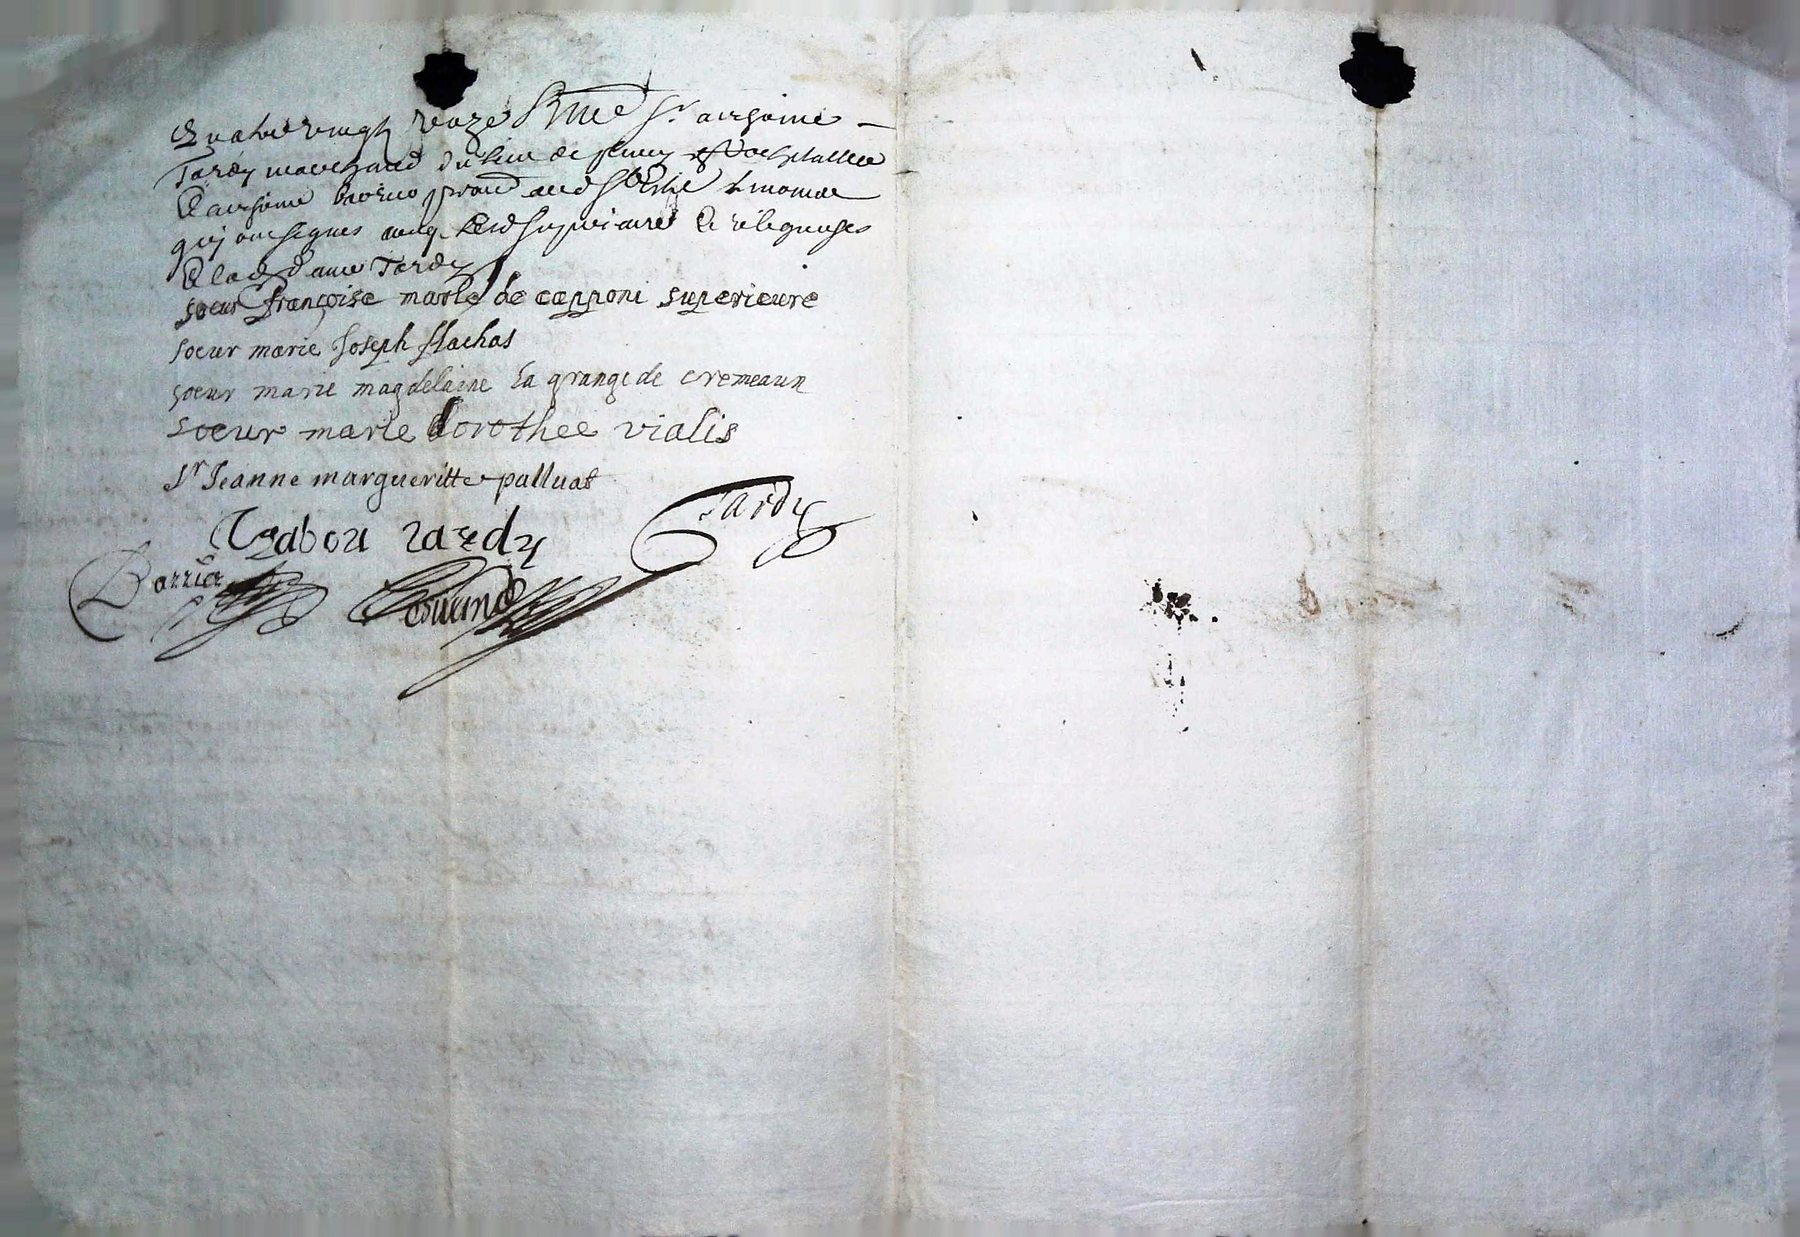 Quatre vingt unze S.r anthoine
Tardy marchand du lieu de
& anthoine qui ont signes avecq lesd superieure & religieuses
& lad dame Tardy
soeur françoise marie de capponi superieure
soeur marie Joseph flachas
soeur marie magdelaine la grange de cremeaux
soeur marie dorothee vialis
s.r Jeanne margueritte palluat
Chabou tardy
Tardy
Barrier